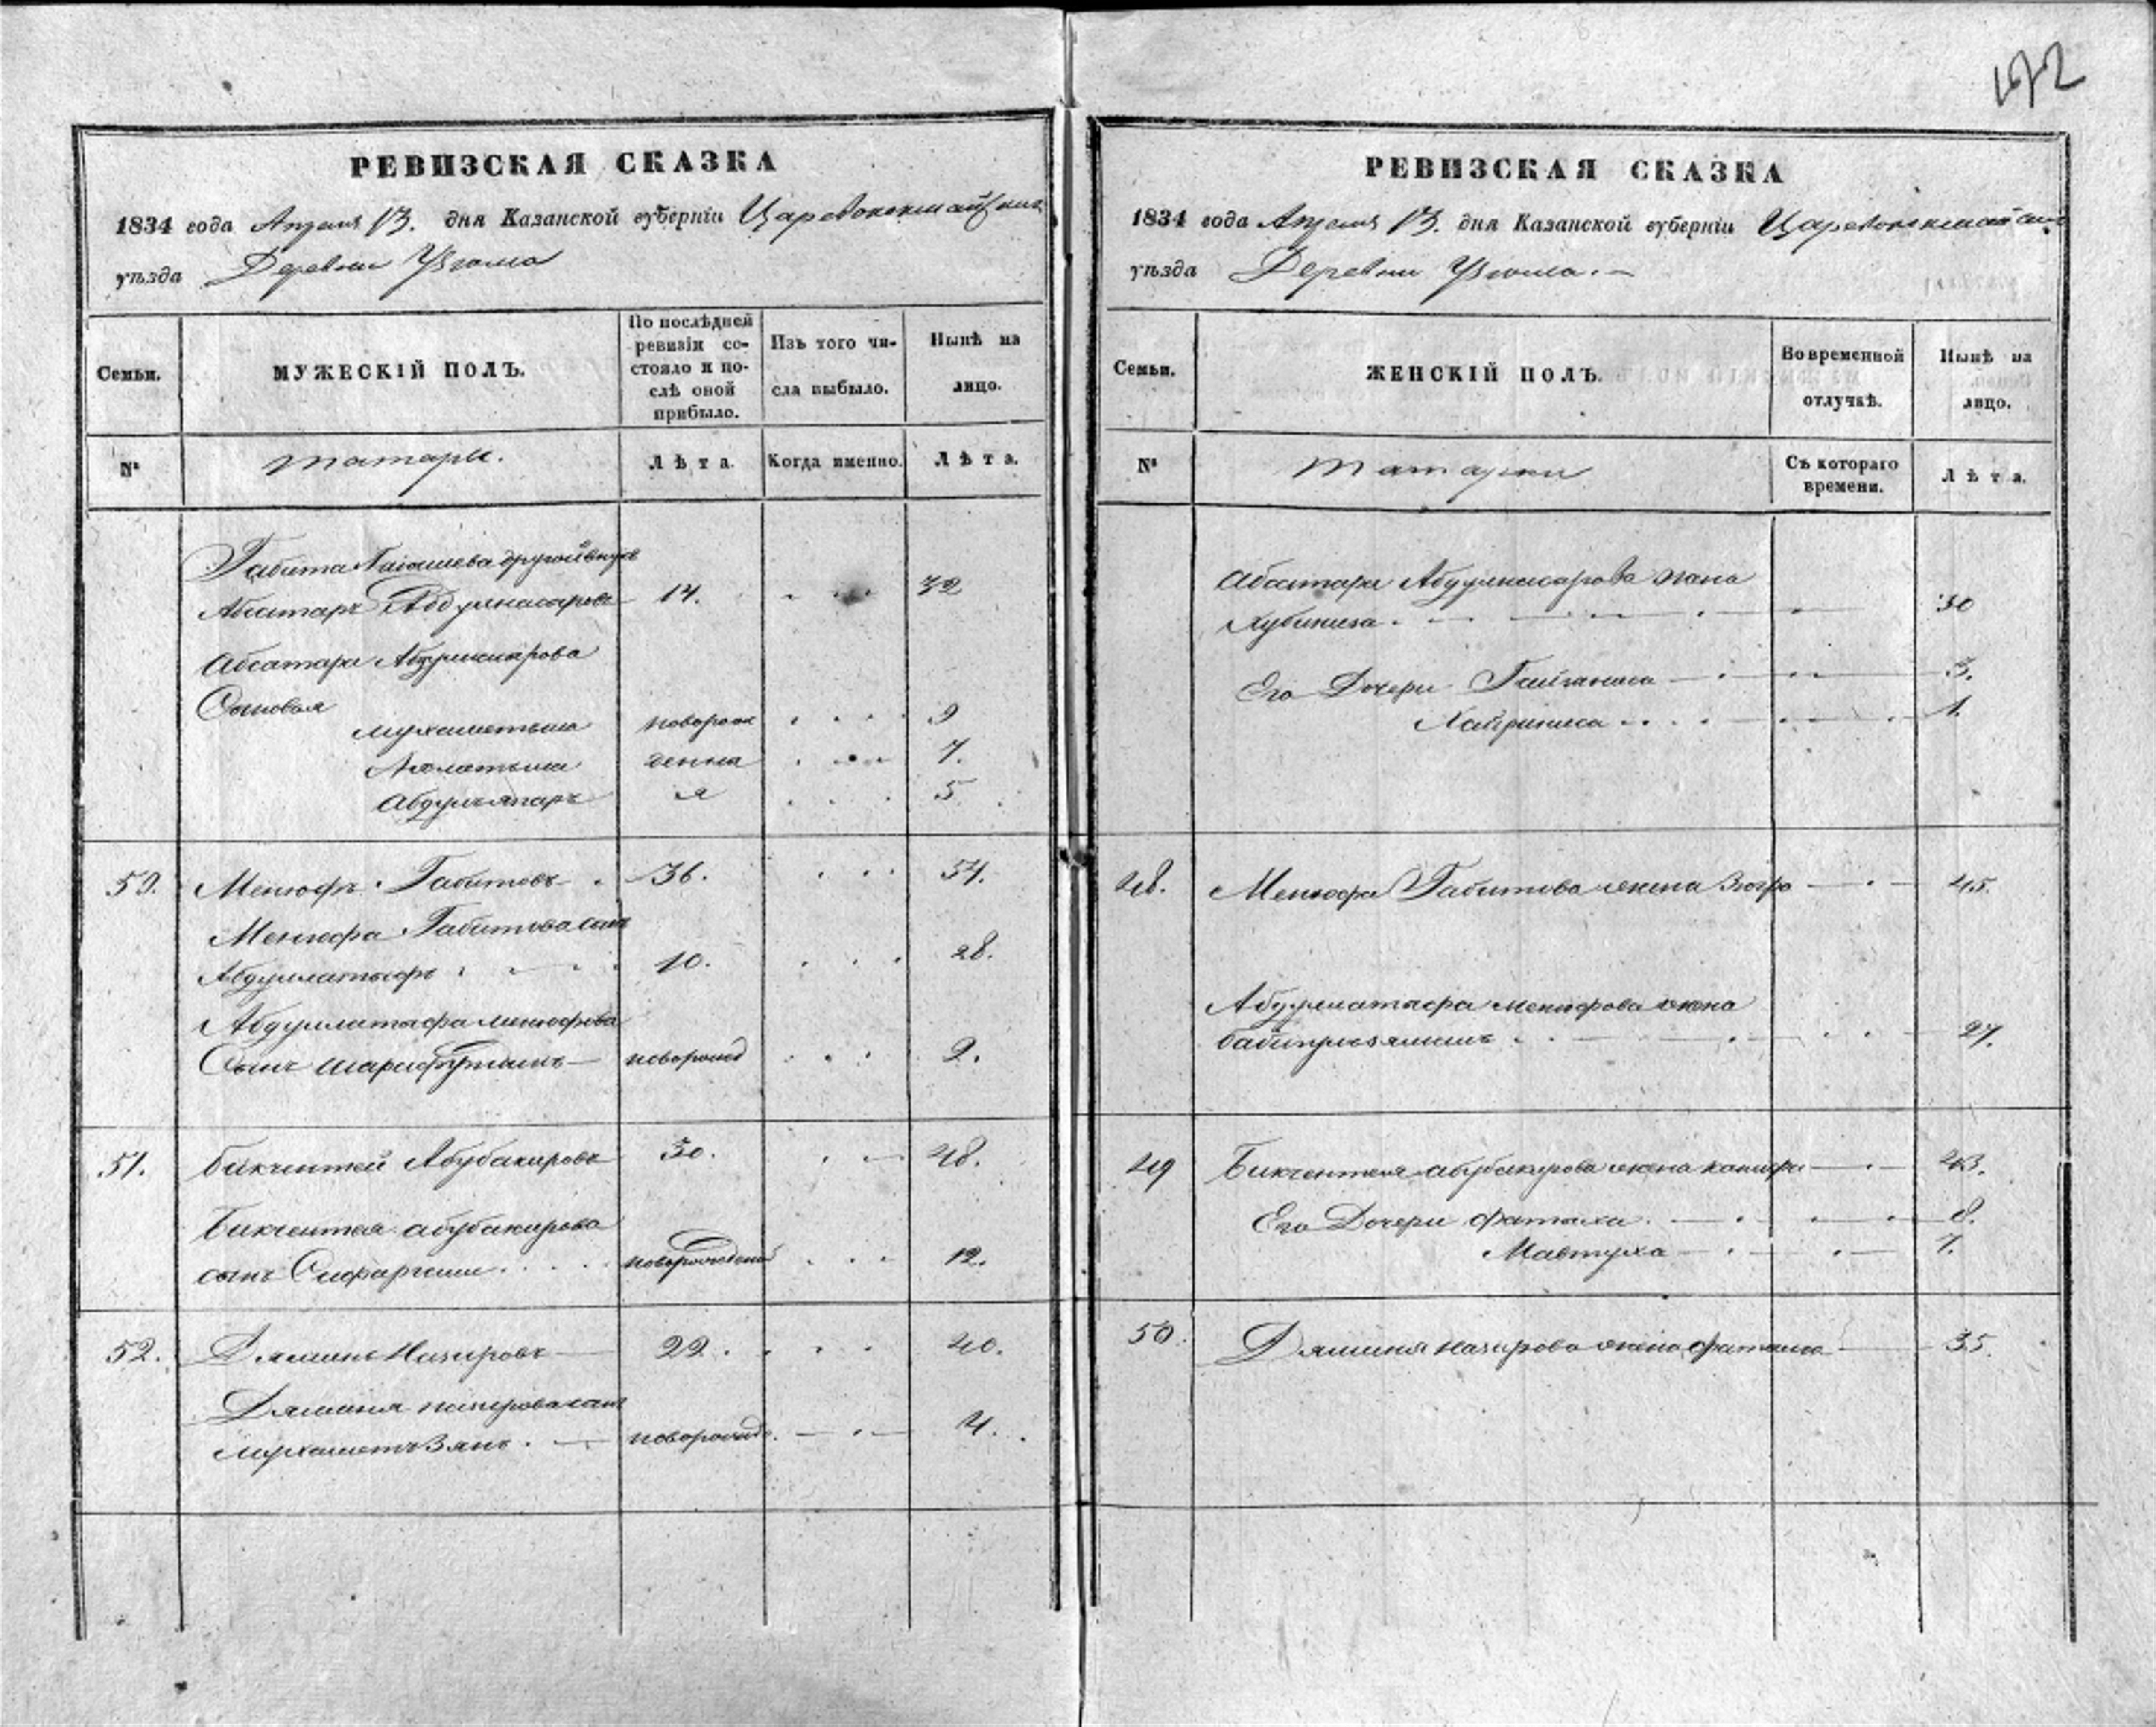 172
РЕВИЗСКАЯ СКАЗКА
1834 года Апреля 13. дня Казанской губерніи Царевококшайской
уѣзда Деревни
Семьи.
МУЖЕСКІЙ ПОЛЪ.
По послѣдней
ревизіи со-
стояло и по-
слѣ оной
прибыло.
Изъ того чи-
сла выбыло.
Нынѣ на
лицо.
№
татары.
Лѣта.
Когда именно.
Лѣта.
Габита другой внукъ
Абсатаръ Абдулнасыровъ 14. 32
Абсатара Абдулнасырова
Сыновья
Мухаметьша новорож 9
Ахметьша денны 7.
я 5
50. Менюфъ Габитовъ 36. 54.
Менюфа Габитова сынъ
Абдуллатыфъ 10. 28.
Абдуллатыфа Менюфова
Сынъ Шарифутдинъ новорожд 2.
51. Бикчентей Абубакировъ 30. 48.
Бикчентея Абубакирова
сынъ новорожденой 12.
52. Дяминь Назировъ 22. 40.
Дяминя Назирова сынъ
МухаметъЗянъ новорожд. 4.
РЕВИЗСКАЯ СКАЗКА
1834 года Апреля 13. дня Казанской губерніи Царевококшайской
уѣзда Деревни
Семьи.
ЖЕНСКІЙ ПОЛЪ.
Во временной
отлучкѣ.
Нынѣ на
лицо.
№
татарки
Съ котораго
времени.
Лѣта.
Абсатара Абдулнасырова жена
Хубиниса 30
Его Дочери 3.
Хайриниса 1.
48. Менюфа Габитова жена Зюгра 45.
Абдуллатыфа Менюфова жена
27.
49 Бикчентея Абубакирова жена 43.
Его Дочери Фатыха 8.
Мавтуха 7.
50. Дяминя Назирова жена 35.